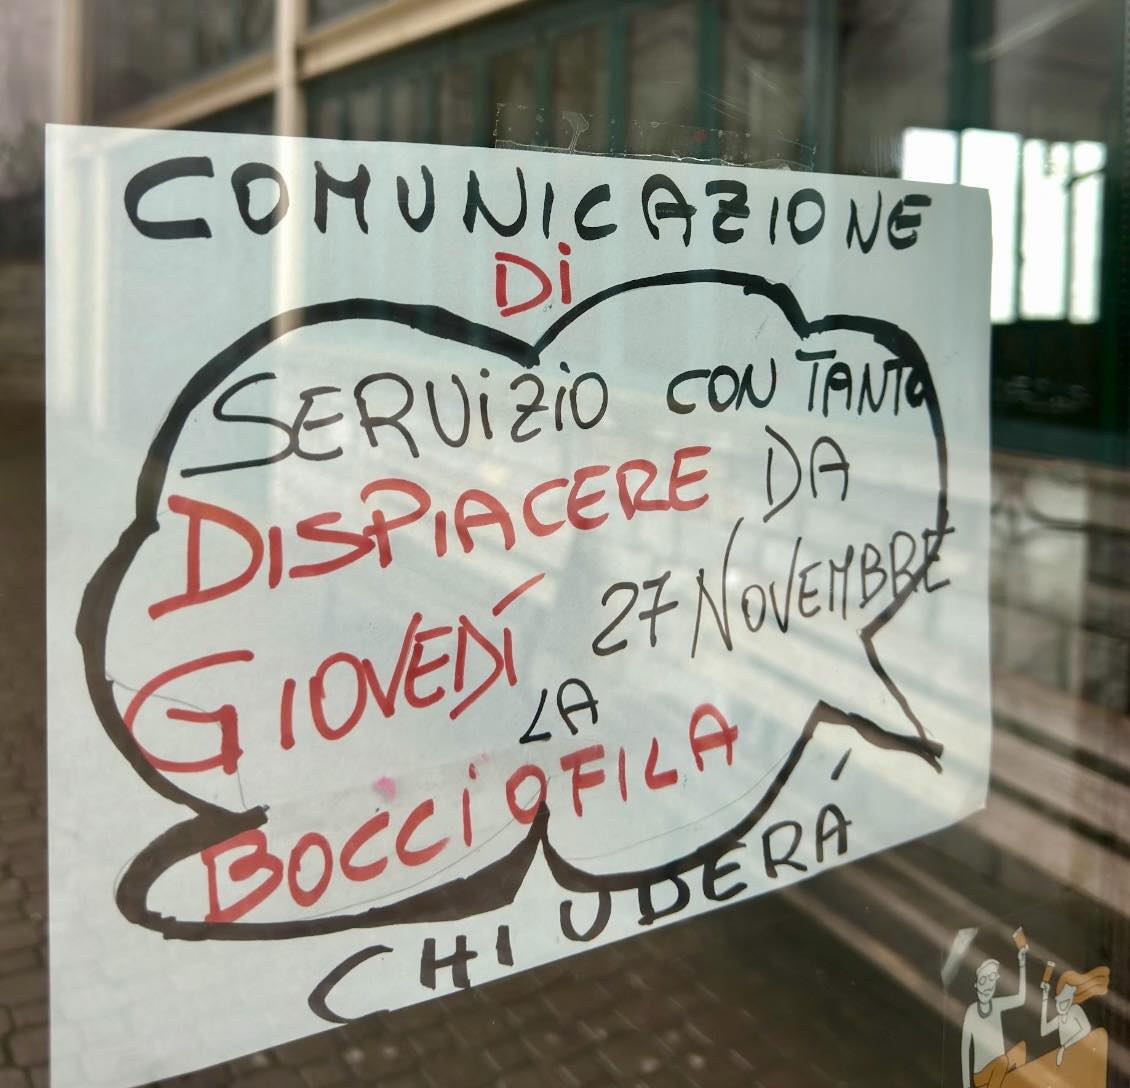 COMUNICAZIONE
Di
SERViZiO CON TANTO
DISPIACERE DA
GIOVEDÍ 27 NOVEMBRE
LA
BOCCiOFILA
CHIUDERÁ